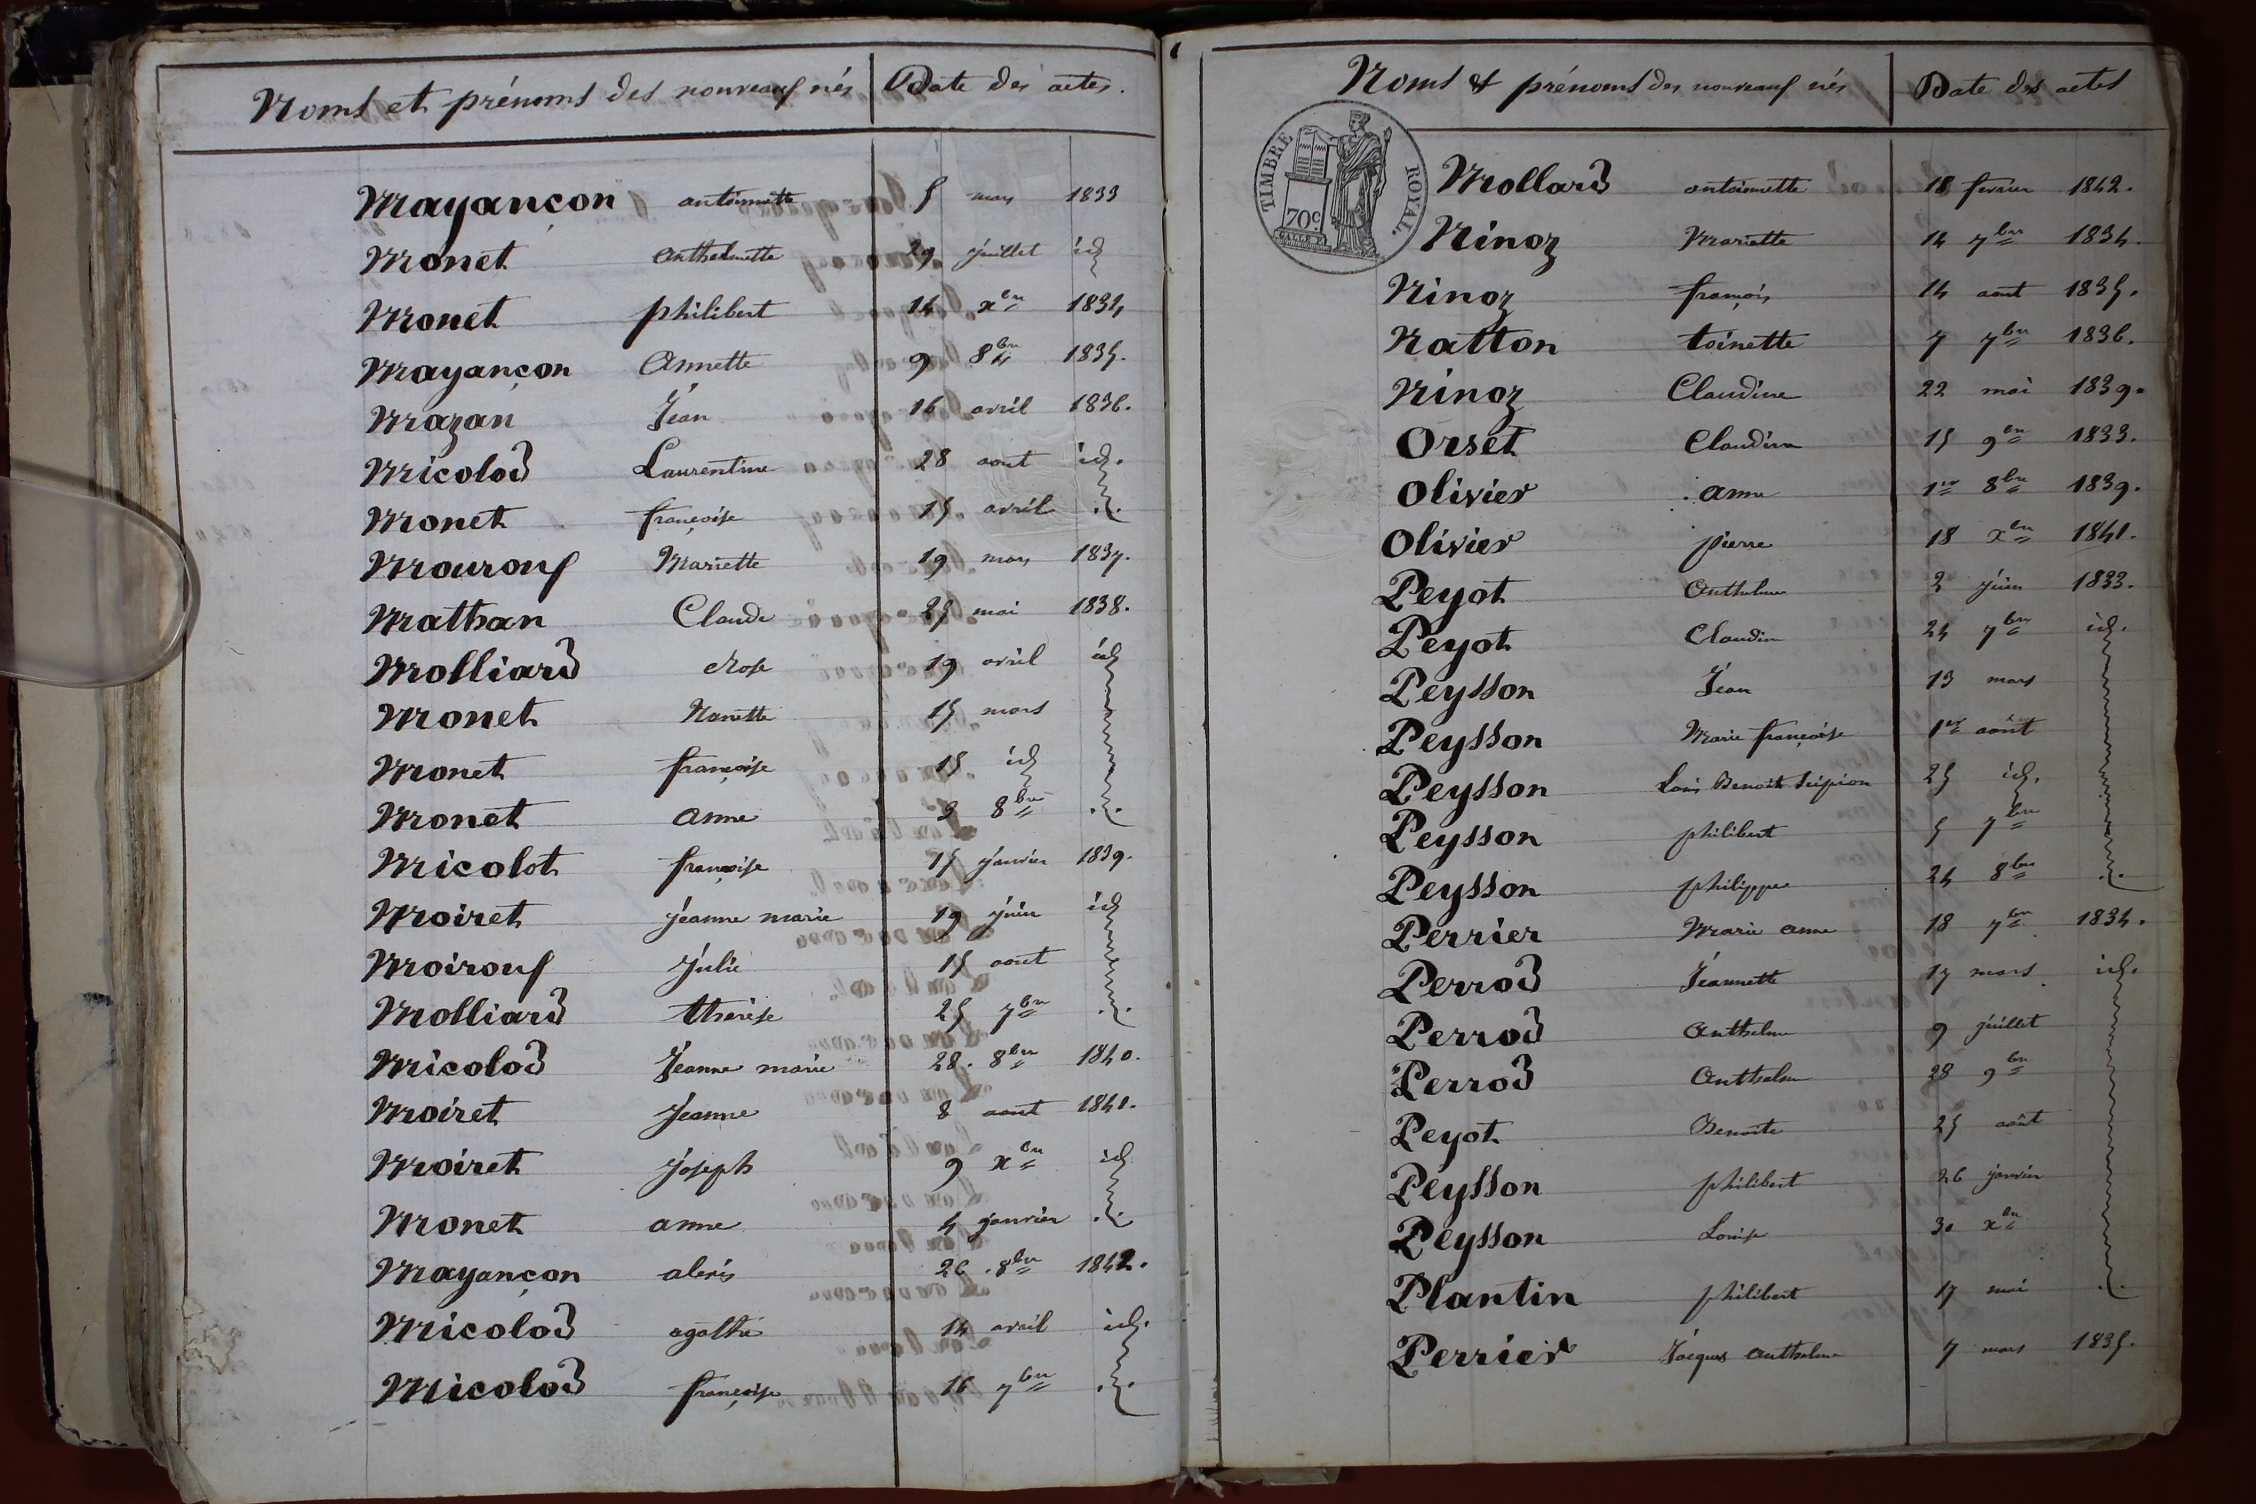 Noms et prénoms des nouveaux nés Date des actes.
Mayançon antoinette 5 mars 1833
Monet anthelmette 29 juillet id
Monet philibert 14 xbre 1834
Mayançon Annette 9 8bre 1835.
Mazan Jean 16 avril 1836.
Micolod Laurentine 28 aout id.
Monet françoise 15 avril
Mouroux Mariette 19 mars 1837.
Mathan Claude 25 mai 1838.
Molliard Rose 19 avril id
Monet Nanette 15 mars
Monet françoise 15 id
Monet anne 3 8bre
Micolot françoise 15 janvier 1839.
Moiret jeanne marie 19 juin id
Moiroux Julie 15 aout
Molliard thérèse 25 7bre
Micolod Jeanne marie 28. 8bre 1840.
Moiret Jeanne 8 aout 1841.
Moiret Joseph 9 xbre id
Monet anne 4 janvier
Mayançon alexis 26 8bre 1842.
Micolod agathe 14 avril id.
Micolod françoise 16 7bre
Noms & prénoms des nouveaux nés Date des actes
TIMBRE ROYAL.
70c.
Mollard antoinette 18 fevrier 1842.
Ninoz Mariette 14 7bre 1834.
Ninoz françois 14 aout 1835.
Natton toinette 7 7bre 1836.
Ninoz Claudine 22 mai 1839.
Orset Claudine 15 9bre 1833.
Olivier anne 1er 8bre 1839.
Olivier pierre 18 xbre 1841.
Peyot Anthelme 2 juin 1833.
Peyot Claudine 24 7bre id.
Peysson Jean 13 mars
Peysson Marie françoise 1er aôut
Peysson Louis Benoit Scipion 25 id.
Peysson philibert 5 7bre
Peysson philippe 24 8bre
Perrier Marie anne 18 7bre 1834.
Perrod Jeannette 17 mars id.
Perrod Anthelme 9 juillet
Perrod Anthelme 28 9bre
Peyot Benoite 25 aôut
Peysson philibert 26 janvier
Peysson Louise 30 xbre
Plantin philibert 17 mai
Perrier Jacques Anthelme 7 mars 1835.